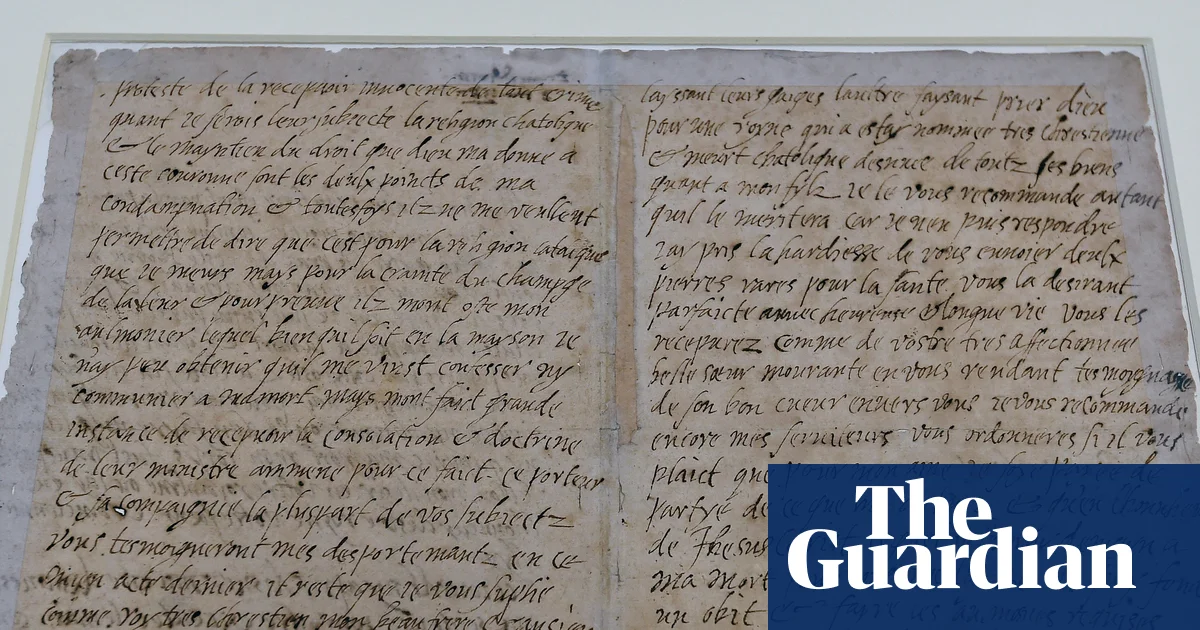 proteste de la recepvoir innocente de tout crime
quant je serois leur subiecte la religion chatolique
& le mayntien du droit que dieu ma donne a
ceste couronne sont les deulx poincts de ma
condampnation & toutesfoys ilz ne me veullent
permettre de dire que cest pour la religion catolique
que ie meurs mays pour la crainte du champge
de la leur & pour preuve ilz mont oste mon
aulmonier lequel bien quil soit en la mayson ie
nay peu obtenir quil me vinst confesser ny
communier a ma mort mays mont faict grande
instance de recepvoir la consolation & doctrine
de leur ministre ammene pour ce faict. ce porteur
& sa compaignie la pluspart de vos subiectz
vous tesmoigneront mes desportemantz en ce
mien acte dernier il reste que ie vous suplie
comme roy tres chrestien mon beau frere & ansien
layssant leurs gaiges laultre faysant prier dieu
pour une royne qui a estay nommee tres chrestienne
& meurt chatolique desnuee de toutz ses biens
quant a mon fylz ie le vous recommande autant
quil le meritera car ie nen puis respondre
iay pris la hardiesse de vous envoier deulx
pierres rares pour la sante vous la desirant
parfaicte avvec heureuse & longue vie vous les
recepvrez comme de vostre tres affectionnee
belle soeur mourante en vous rendant tesmoygnasge
de son bon cueur envers vous ie vous recommande
encore mes serviteurs vous ordonneres si il vous
plaict que
partye de
de Jhesus
ma mort
un obit
The
Guardian